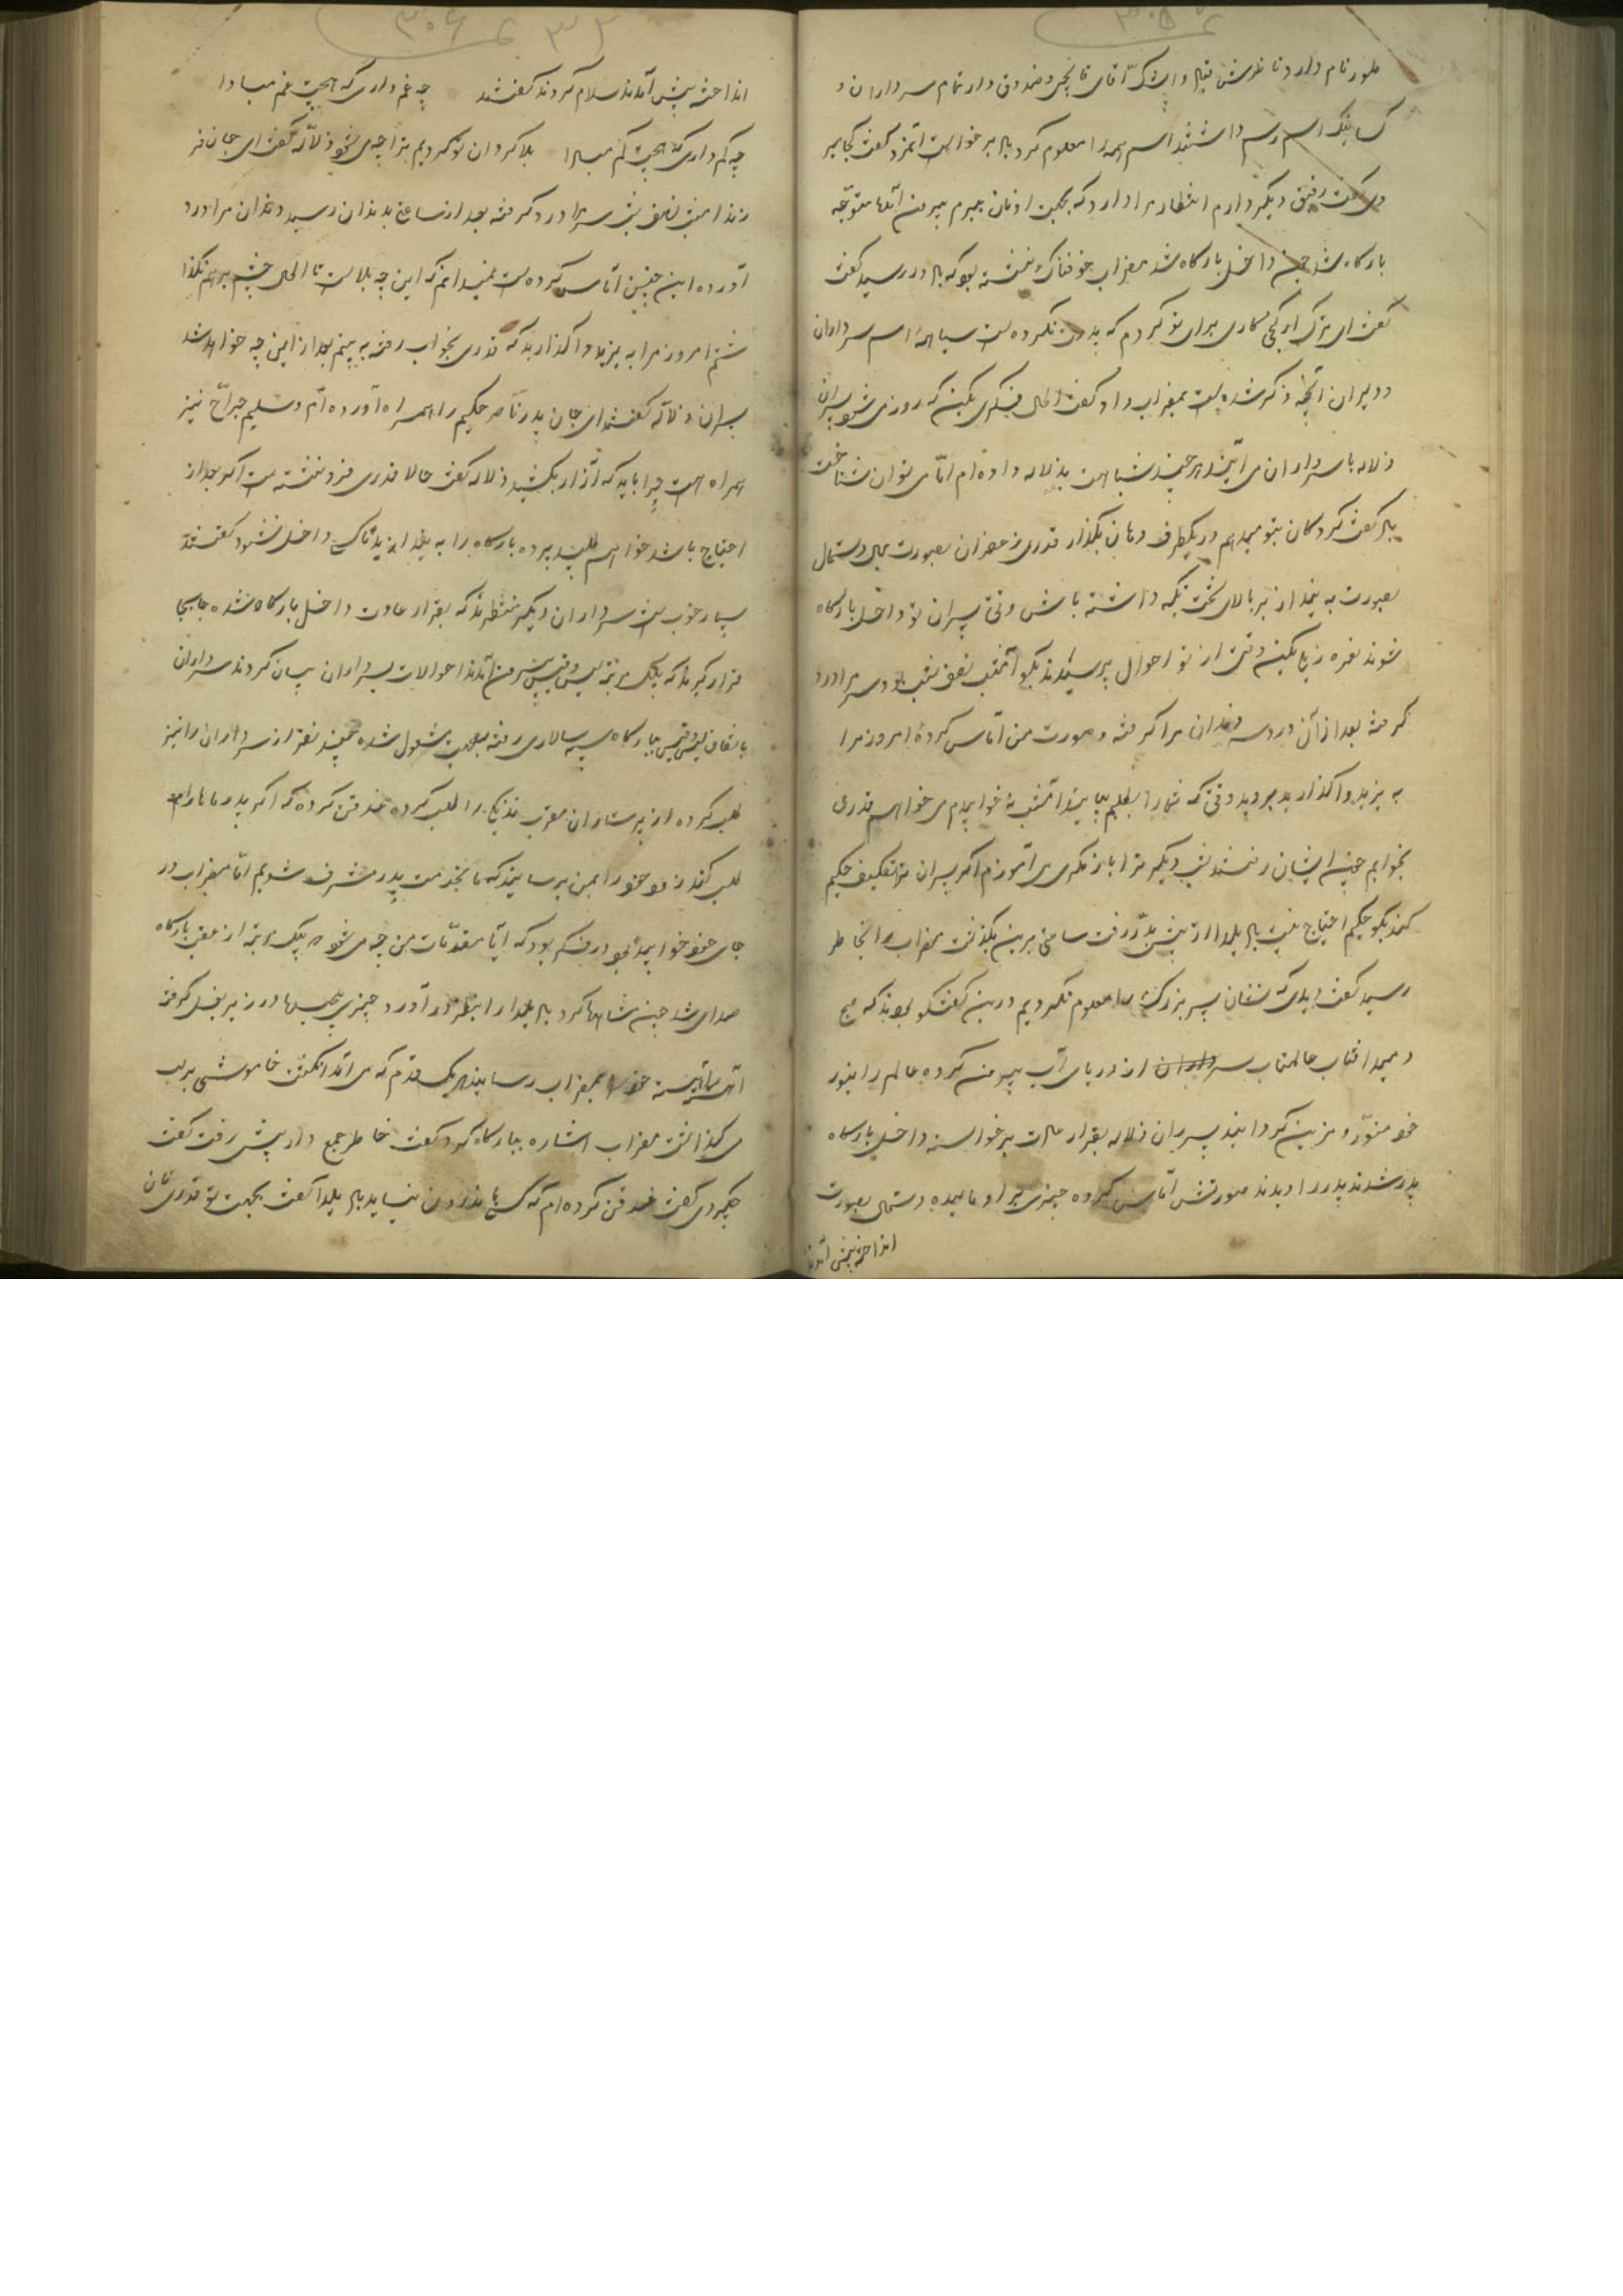 طور نام دارد ناظرش و تمام سرداران و
کسانیکه اسم رسم داشتند اسم همه را معلوم کرد برخواست گفت کجا میر
وی گفت رفیق دیگر دارم انتظار مرا دارد که بجهت او نان ببرم بیرون آمد متوجّه
بارکاه شد چون داخل بارکاه شد مضراب خوفناک نشسته بود که در رسید گفت
گفت ای ترک کاری برای تو کردم که پدرت نکرده است سیاههٔ اسم سرداران
و دیران آنچه ذکر شده است بمضراب داد گفت الحال فکری بکن که روز می شود پسران
ذلاله با سرداران می آیند هرچند شباهت بذلاله داده ام امّا می توان شناخت
گفت گردکان بتو میدهم در یکطرف دهان بگذار قدری زعفران بصورت بمال دستمال
بصورت به بند از بر بالای تخت تکیه داشته باش وقتی پسران تو داخل بارکاه
شوند نعره بکن وقتی از تو احوال پرسیدند بگو امشب نصف شب بود سر مرا درد
گرفت بعد از آن درد سر دندان مرا گرفته و صورت من آماس کرده امروز مرا
به یزید واگذارید بروید وقتی که شما را بطلبم بیایید امشب نخوابیدم می خواهم قدری
بخوابم چون ایشان رفتند شب دیگر ترا باز مکری می آموزم اگر پسران تو تکلیف حکیم
کنند بگو حکیم احتیاج نیست یلدا از پیش بدر رفت ساعتی برین بگذشت مضراب را بخاطر
رسید گفت دیدی که نشان پسر بزرک را معلوم نکردیم درین گفتگو بودند که صبح
دمید افتاب عالمتاب سر از دریای آب بیرون کرده عالم را بنور
خود منوّر و مزین گردانید پسران ذلاله بقرار عادت برخواسته داخل بارکاه
پدر شدند پدر را دیدند صورتش آماس کرده چیزی بر او مالیده دستمال بصورت
انداخته پیش آمدند
انداخته پیش آمدند سلام کردند گفتند چه غم داری که هیچت غم مبادا
چه کم داری که هیچت کم مبادا بلا گردان تو گردیم ترا چه می شود ذلاله گفت ای جان فر
زندا امشب نصف شب سر مرا درد گرفته بعد از ساعتی بدندان رسید دندان مرا درد
آورده این چنین آماس کرده است نمیدانم که این چه بلا است تا الحال چشم برهم نگذا
شتم امروز مرا به یزید واگذارید که قدری بخواب رفته به بینم بعد از این چه خواهد شد
پسران ذلاله گفتند ای جان پدر ناصر حکیم را همراه آورده ام و سلیم جراح نیز
همراه است چرا باید که آزار بکشید ذلاله گفت حالا قدری فرو نشسته است اگر بعد از
احتیاج باشد خواهم طلبید پرده بارکاه را به بندازید تا کسی داخل نشود گفتند
بسیار خوب است سرداران دیگر منتظرند که بقرار عادت داخل بارکاه شده جا بجا
قرار گیرند که یک مرتبه پیش آمدند احوالات بسرداران بیان کردند سرداران
باتفاق ببارکاه سپه سالاری رفته بصحبت مشغول شده چند نفر از سرداران را نیز
طلب کرده از پرستاران مقرب نزدیک را طلب کرده غدقن کرده که اگر پدر ما ما را
طلب کند زود خود را بمن برسانید که ما بخدمت پدر مشرف شویم امّا مضراب در
جای خود خوابیده بود در فکر بود که آیا مقدّمات من چه می شود یک مرتبه از عقب بارکاه
صدای شد چون نگاه کرد یلدا را بنظر در آورد چیزی پیچیده در زیر بغل گرفته
آهسته آهسته خود را بمضراب رسانید هر یک قدم که می آمد انگشت خاموشی بر لب
می گذاشت مضراب اشاره ببارکاه کرد گفت خاطر جمع دار پیش رفت گفت
چکردی گفت غدقن کرده ام که کسی باندرون نیاید یلدا گفت بجهت تو قدری نان